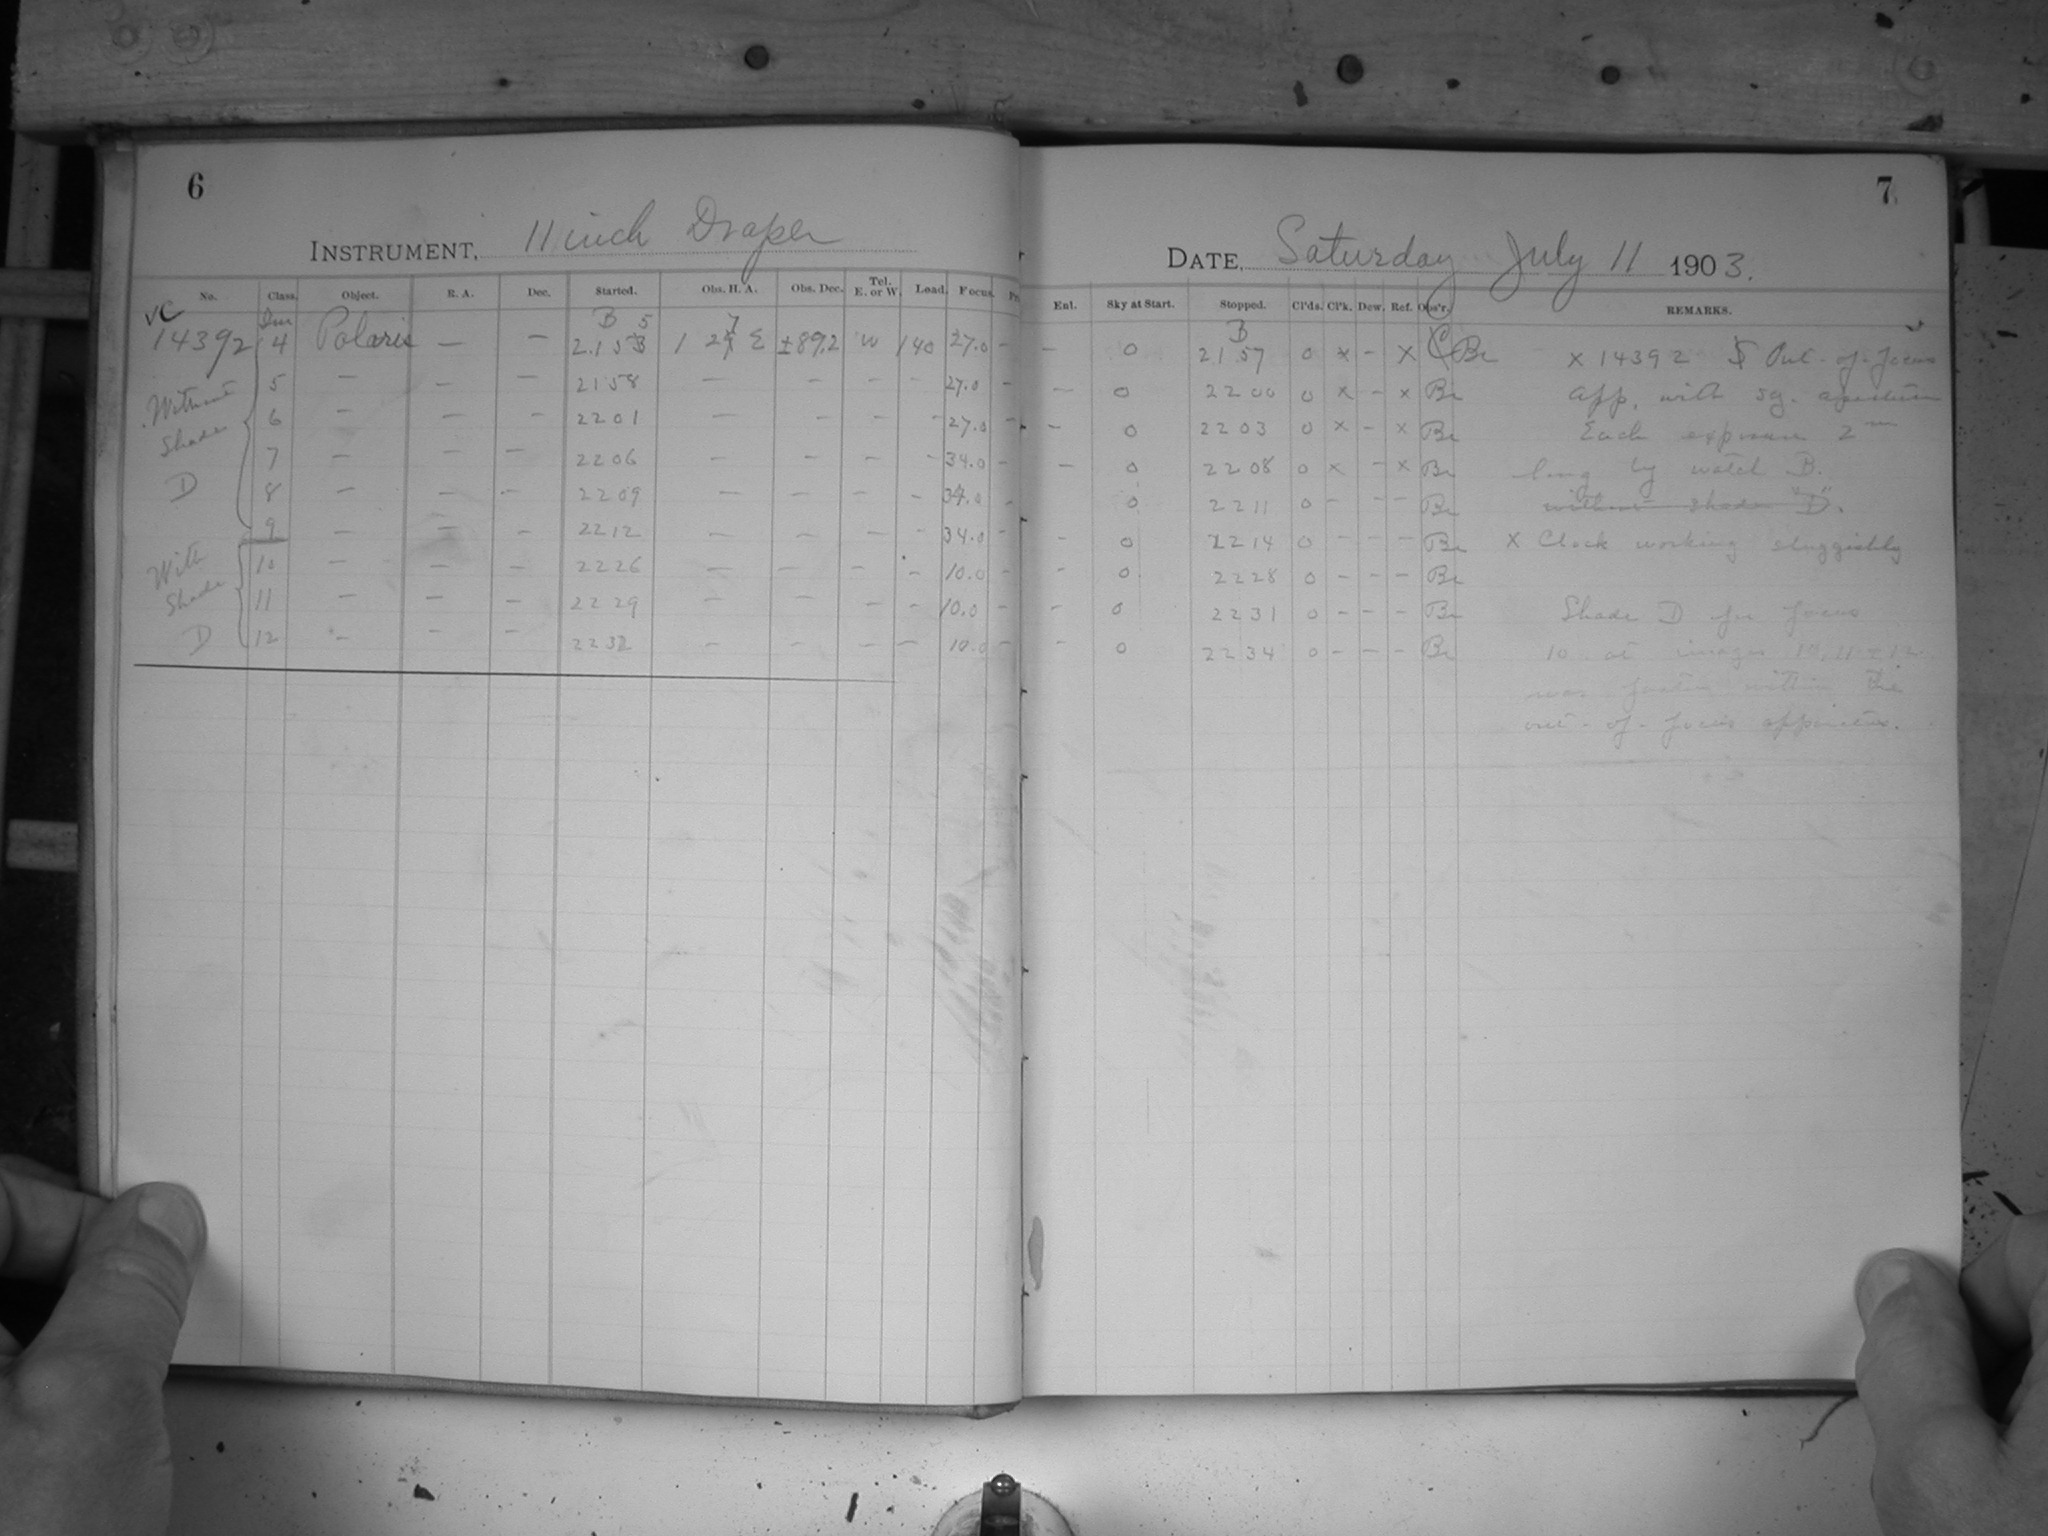 6
INSTRUMENT, 11 inch Draper
No. Class. Object. R. A. Dec. Started. Obs. H. A. Obs. Dec. Tel. E. or W. Load. Focus.
VC B 5 7
14392 4 Polaris — — 2153 1 27 E ±89.2 W 140 27.0 -
5 — — — 2158 — — — — 27.0 -
Without 6 — — — 2201 — — — — 27.0 -
Shade 7 — — — 2206 — — — — 34.0 -
D 8 — — — 2209 — — — — 34.0 -
9 — — — 2212 — — — — 34.0 -
With 10 — — — 2226 — — — — 10.0 -
Shade 11 — — — 2229 — — — — 10.0 -
D 12 — — — 2232 — — — — 10.0 -
7
DATE, Saturday July 11 1903.
Enl. Sky at Start. Stopped. Cl'ds. Cl'k. Dew. Ref. Obs'r. REMARKS.
B
— 0 2157 0 x - x Br x 14392 Out-of-focus
— 0 2200 0 x - x Br app. with sq. aperture
— 0 2203 0 x - x Br Each exposure 2m
— 0 2208 0 x - x Br long by watch B.
0 2211 0 - - Br without shade "D".
- 0 2214 0 - - - Br x Clock working sluggishly
- 0 2228 0 - - - Br
- 0 2231 0 - - - Br Shade D for focus
- 0 2234 0 - - - Br 10 at images 10, 11 & 12
was within the
out-of-focus apparatus.